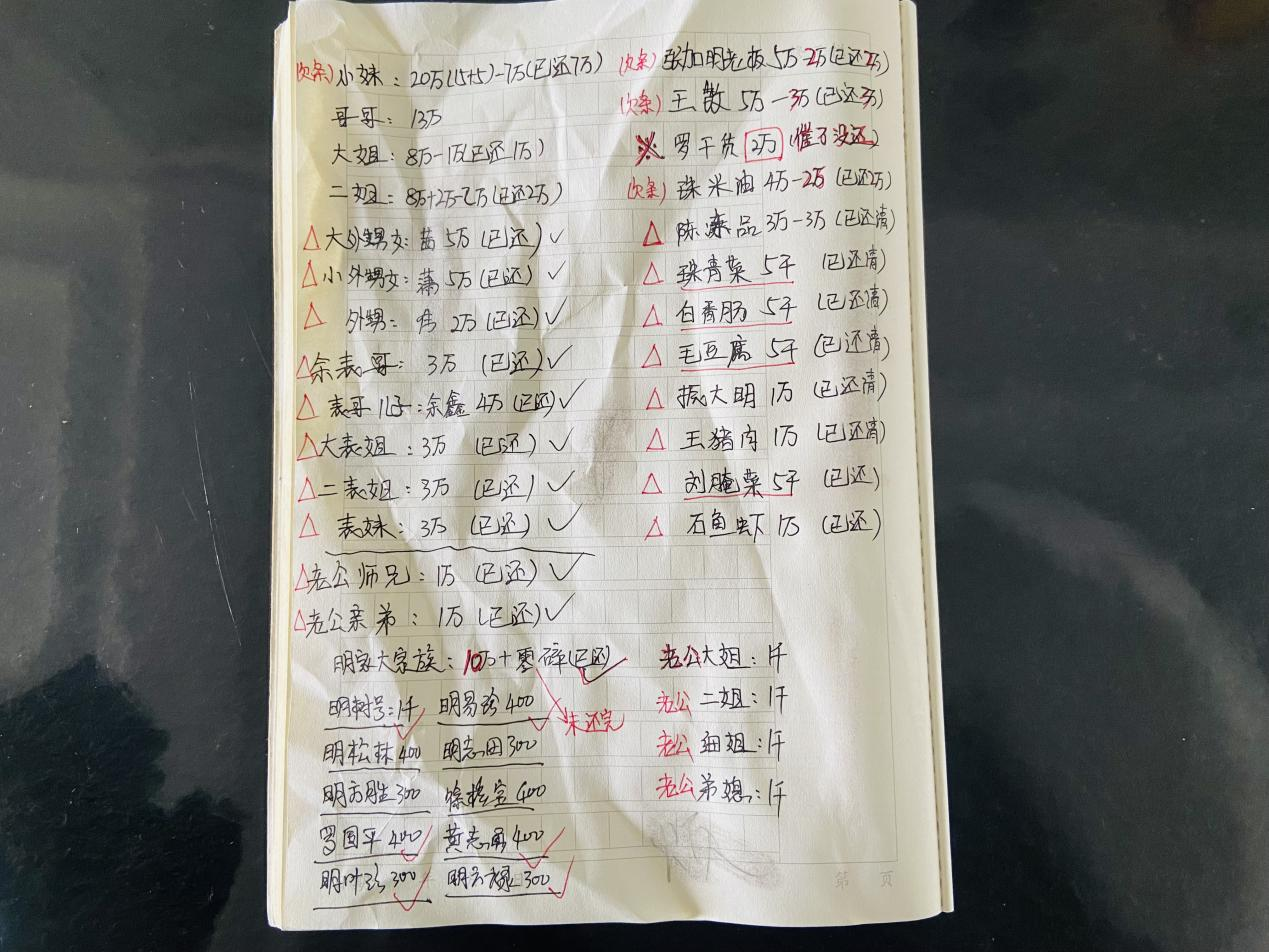 (欠条) 小妹：20万(15+5)-7万(已还7万)
哥哥：13万
大姐：8万-1万(已还1万)
二姐：8万+2万-2万(已还2万)
△大外甥女：茜 5万 (已还) ✓
△小外甥女：5万 (已还) ✓
△ 外甥：2万 (已还) ✓
△余表哥：3万 (已还) ✓
△ 表哥儿子：余鑫 4万 (已还) ✓
△大表姐：3万 (已还) ✓
△二表姐：3万 (已还) ✓
△ 表妹：3万 (已还) ✓
△老公师兄：1万 (已还) ✓
△老公亲弟：1万 (已还) ✓
明家大家族：10万+零碎(已还) ✓
未还完
明树号：1千 ✓ 明易珍 400 ✓
明松林 400 明志田 300
明方胜 300 徐 400
罗国平 400 ✓ 黄志勇 400 ✓
明叶珍 300 ✓ 明方禄 300 ✓
(欠条) 张加明老板 5万-2万(已还2万)
(欠条) 王散 5万-3万(已还3万)
※ 罗干货 2万 (催了没还)
(欠条) 珠米油 4万-2万 (已还2万)
△ 陈冻品 3万-3万 (已还清)
△ 珠青菜 5千 (已还清)
△ 白香肠 5千 (已还清)
△ 毛豆腐 5千 (已还清)
△ 振大明 1万 (已还清)
△ 王猪肉 1万 (已还清)
△ 刘腌菜 5千 (已还)
△ 石鱼虾 1万 (已还)
老公大姐：1千
老公二姐：1千
老公细姐：1千
老公弟媳：1千
第 页